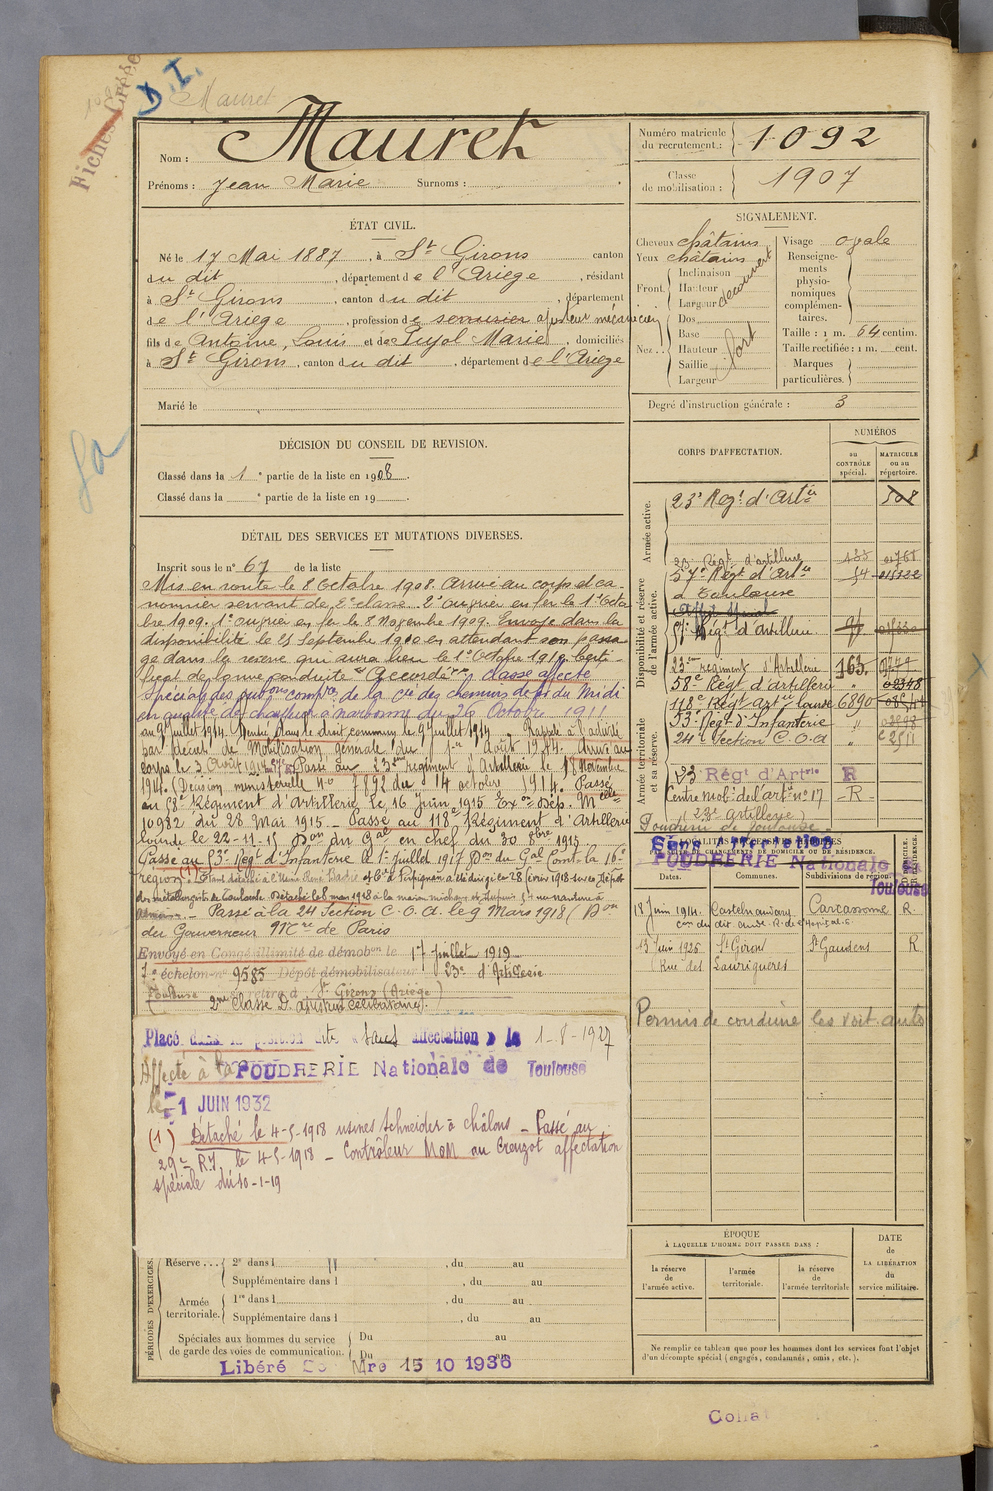 Fiches
D. I.
Mauret
Nom : Mauret
Prénoms : Jean Marie Surnoms :
Numéro matricule du recrutement : 1092
Classe de mobilisation : 1907
ÉTAT CIVIL.
Né le 17 Mai 1887, à St Girons canton
du dit, département de l'Ariège, résidant
à St Girons, canton du dit, département
de l'Ariège, profession de serrurier ajusteur mécanicien
fils de Antoine, Louis et de Pujol Marie, domiciliés
à St Girons, canton du dit, département de l'Ariège
Marié le
SIGNALEMENT.
Cheveux châtains
Yeux châtains
Front. Inclinaison
Hauteur
Largeur
découvert
Nez. Dos
Base
Hauteur
Saillie
Largeur
fort
Visage ovale
Renseignements physionomiques complémentaires.
Taille : 1 m. 64 centim.
Taille rectifiée : 1 m. cent.
Marques particulières.
Degré d'instruction générale : 3
DÉCISION DU CONSEIL DE REVISION.
Classé dans la 1e partie de la liste en 1908.
Classé dans la e partie de la liste en 19
DÉTAIL DES SERVICES ET MUTATIONS DIVERSES.
Inscrit sous le n° 67 de la liste
Mis en route le 8 Octobre 1908. Arrivé au corps et ca-
nonnier servant de 2e classe.
1909. 1er en fer le 8 Novembre 1909. Envoyé dans la
disponibilité le 25 Septembre 1910 en attendant son passa-
ge dans la réserve qui aura lieu le 1er Octobre 1910. Certi-
ficat de bonne conduite "Accordé". Classé affecté
spécial des de la Cie des chemins de fer du Midi
en qualité de chauffeur à Narbonne du 26 Octobre 1911
au 9 Juillet 1914. Rentré dans le droit commun le 9 Juillet 1914. Rappelé à l'activité
par décret de Mobilisation générale du 1er Août 1914. Arrivé au
corps le 3 Août 1914. Passé au 23ème régiment d'Artillerie le 18 Novembre
1914. (Décision ministérielle n° 7892 du 14 octobre 1914. Passé
au 58e Régiment d'Artillerie le 16 juin 1915 Exon Dép. Melle
10932 du 28 Mai 1915 - Passé au 118e Régiment d'Artillerie
lourde le 22-11-15 Don du Gal en chef du 30 1915
Passé au 53e Régt d'Infanterie le 1er Juillet 1917 Don du Gal Comt la 16e
région (1)
Détaché le 8 mars 1918
Passé à la 24 Section C.O.A. le 9 Mars 1918 (Don
du Gouverneur Mre de Paris
Envoyé en Congé illimité de démobon le 17 Juillet 1919
7e échelon n° 9585 Dépôt démobilisateur 23e d'Artillerie
Toulouse se retire à St Girons (Ariège)
2me Classe D. ajusteur célibataire
Placé dans la position dite « sans affectation » le 1-8-1927
Affecté à la POUDRERIE Nationale de Toulouse
le 1 JUIN 1932
(1) Détaché le 4-5-1918 usines Schneider à Châlons - Passé au
29e RI le 4-5-1918 - Contrôleur MOM au Creuzot affectation
spéciale du 10-1-19
CORPS D'AFFECTATION.
NUMÉROS
au CONTRÔLE spécial.
MATRICULE ou au répertoire.
Armée active.
23e Regt d'Artie 508
Disponibilité et réserve de l'armée active.
23e Régt d'artillerie
57e Regt d'Artie 54
à Toulouse
Affté Spécial
57e Regt d'Artillerie
23me régiment d'Artillerie 163
58e Régt d'Artillerie
118e Regt Artie lourde 6890
53e Regt d'Infanterie
24e Section C.O.A. "
Armée territoriale et sa réserve.
23 Régt d'Artrie R
Centre mob. de l'arte n° 17 - R -
23e Artillerie
Poudrerie de Toulouse
Sans Affectation
POUDRERIE Nationale de Toulouse
PAR SUITE DE CHANGEMENTS DE DOMICILE OU DE RÉSIDENCE.
Dates. Communes. Subdivisions de région.
18 Juin 1914. Castelnaudary Carcassonne R.
13 Juin 1926 St Girons St Gaudens R
(Rue des Lauriguères
Permis de conduire les voit. auto
PÉRIODES D'EXERCICES.
Réserve . . . 2e dans l , du au
Supplémentaire dans l , du au
Armée territoriale. 1re dans l , du au
Supplémentaire dans l , du au
Spéciales aux hommes du service de garde des voies de communication. Du au
Du au
Libéré Mre 15 10 1936
ÉPOQUE
À LAQUELLE L'HOMME DOIT PASSER DANS :
la réserve de l'armée active.
l'armée territoriale.
la réserve de l'armée territoriale
DATE DE LA LIBÉRATION du service militaire.
Ne remplir ce tableau que pour les hommes dont les services font l'objet
d'un décompte spécial (engagés, condamnés, omis, etc.).